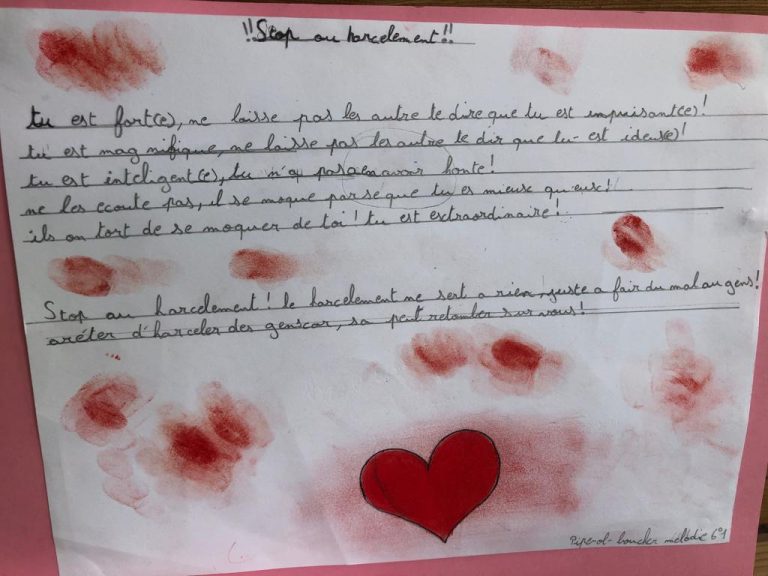 !!Stop au harcelement!!
tu est fort(e), ne laisse pas les autre te dire que tu est impuisant(e)!
tu est magnifique, ne laisse pas les autre te dir que tu est ideux(e)!
tu est inteligent(e), tu n'a pas a en avoir honte!
ne les ecoute pas, il se moque par se que tu es mieux qu'eux!
ils on tort de se moquer de toi! tu est extraordinaire!
Stop au harcelement! le harcelement ne sert a rien, juste a fair du mal au gens!
aréter d'harceler des gens car, sa peut retomber sur vous!
mélodie 6°1